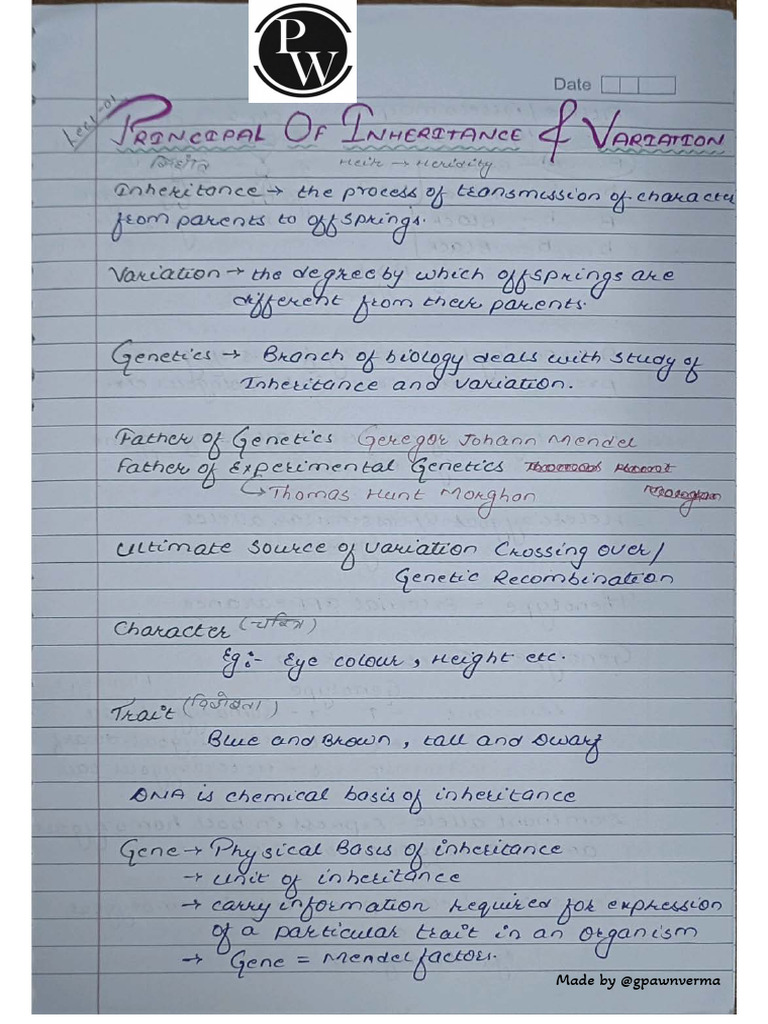 PW
Date
Lect-01
PRINCIPAL OF INHERITANCE & VARIATION
Heir → Heridity
Inheritance → the process of transmission of character
from parents to offsprings.
Variation → the degree by which offsprings are
different from their parents.
Genetics → Branch of biology deals with study of
Inheritance and variation.
Father of Genetics Geregor Johann Mendel
Father of Experimental Genetics
↳ Thomas Hunt Morghan
Ultimate source of variation Crossing over/
Genetic Recombination
Character (चरित्र)
Eg:- Eye colour, Height etc.
Trait (विशेषता)
Blue and Brown, tall and Dwarf
DNA is chemical basis of inheritance
Gene → Physical Basis of inheritance
→ unit of inheritance
→ carry information required for expression
of a particular trait in an organism
→ Gene = Mendel factors.
Made by @gpawnverma